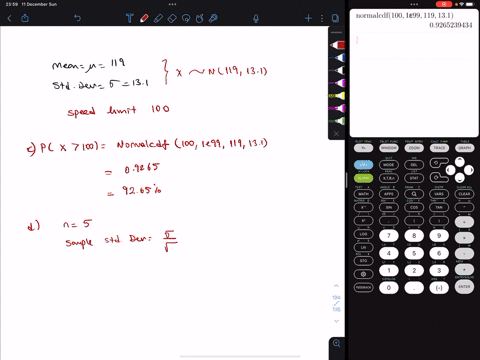 23:59 11 December Sun
mean = μ = 119
Std. Dev = σ = 13.1
} X ~ N(119, 13.1)
speed limit 100
c) P( X > 100) = Normalcdf (100, 1e99, 119, 13.1)
= 0.9265
= 92.65%
d) n = 5
Sample std Dev = σ/√
normalcdf(100,1E99,119,13.1)
0.9265239434
WINDOW ZOOM TRACE GRAPH
MODE DEL
STAT
MATH APPS VARS CLEAR
SIN COS TAN ^
LOG 7 8 9
LN 4 5 6
STO 1 2 3
0 . (-) ENTER
FEEDBACK